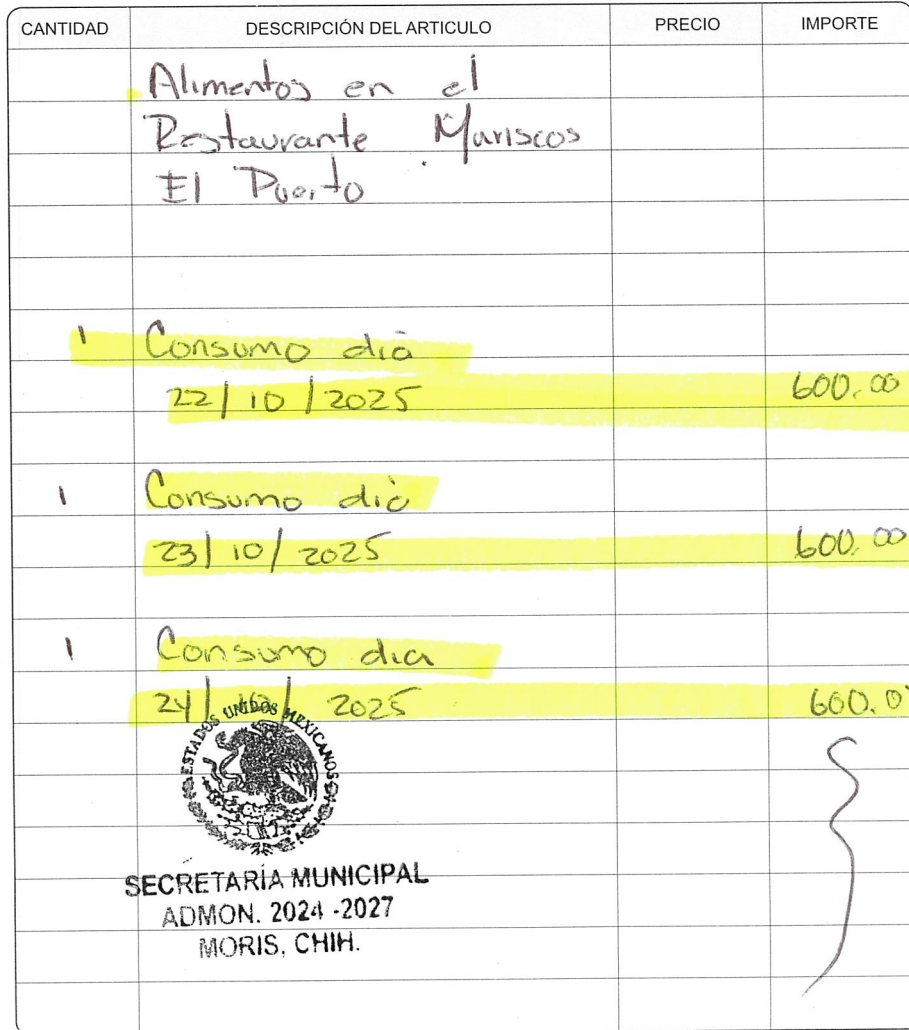 CANTIDAD DESCRIPCIÓN DEL ARTICULO PRECIO IMPORTE
Alimentos en el
Restaurante Mariscos
El Puerto
1 Consumo dia
22/10/2025 600.00
1 Consumo dia
23/10/2025 600.00
1 Consumo dia
24/10/2025 600.0
ESTADOS UNIDOS MEXICANOS
SECRETARÍA MUNICIPAL
ADMON. 2024-2027
MORIS, CHIH.